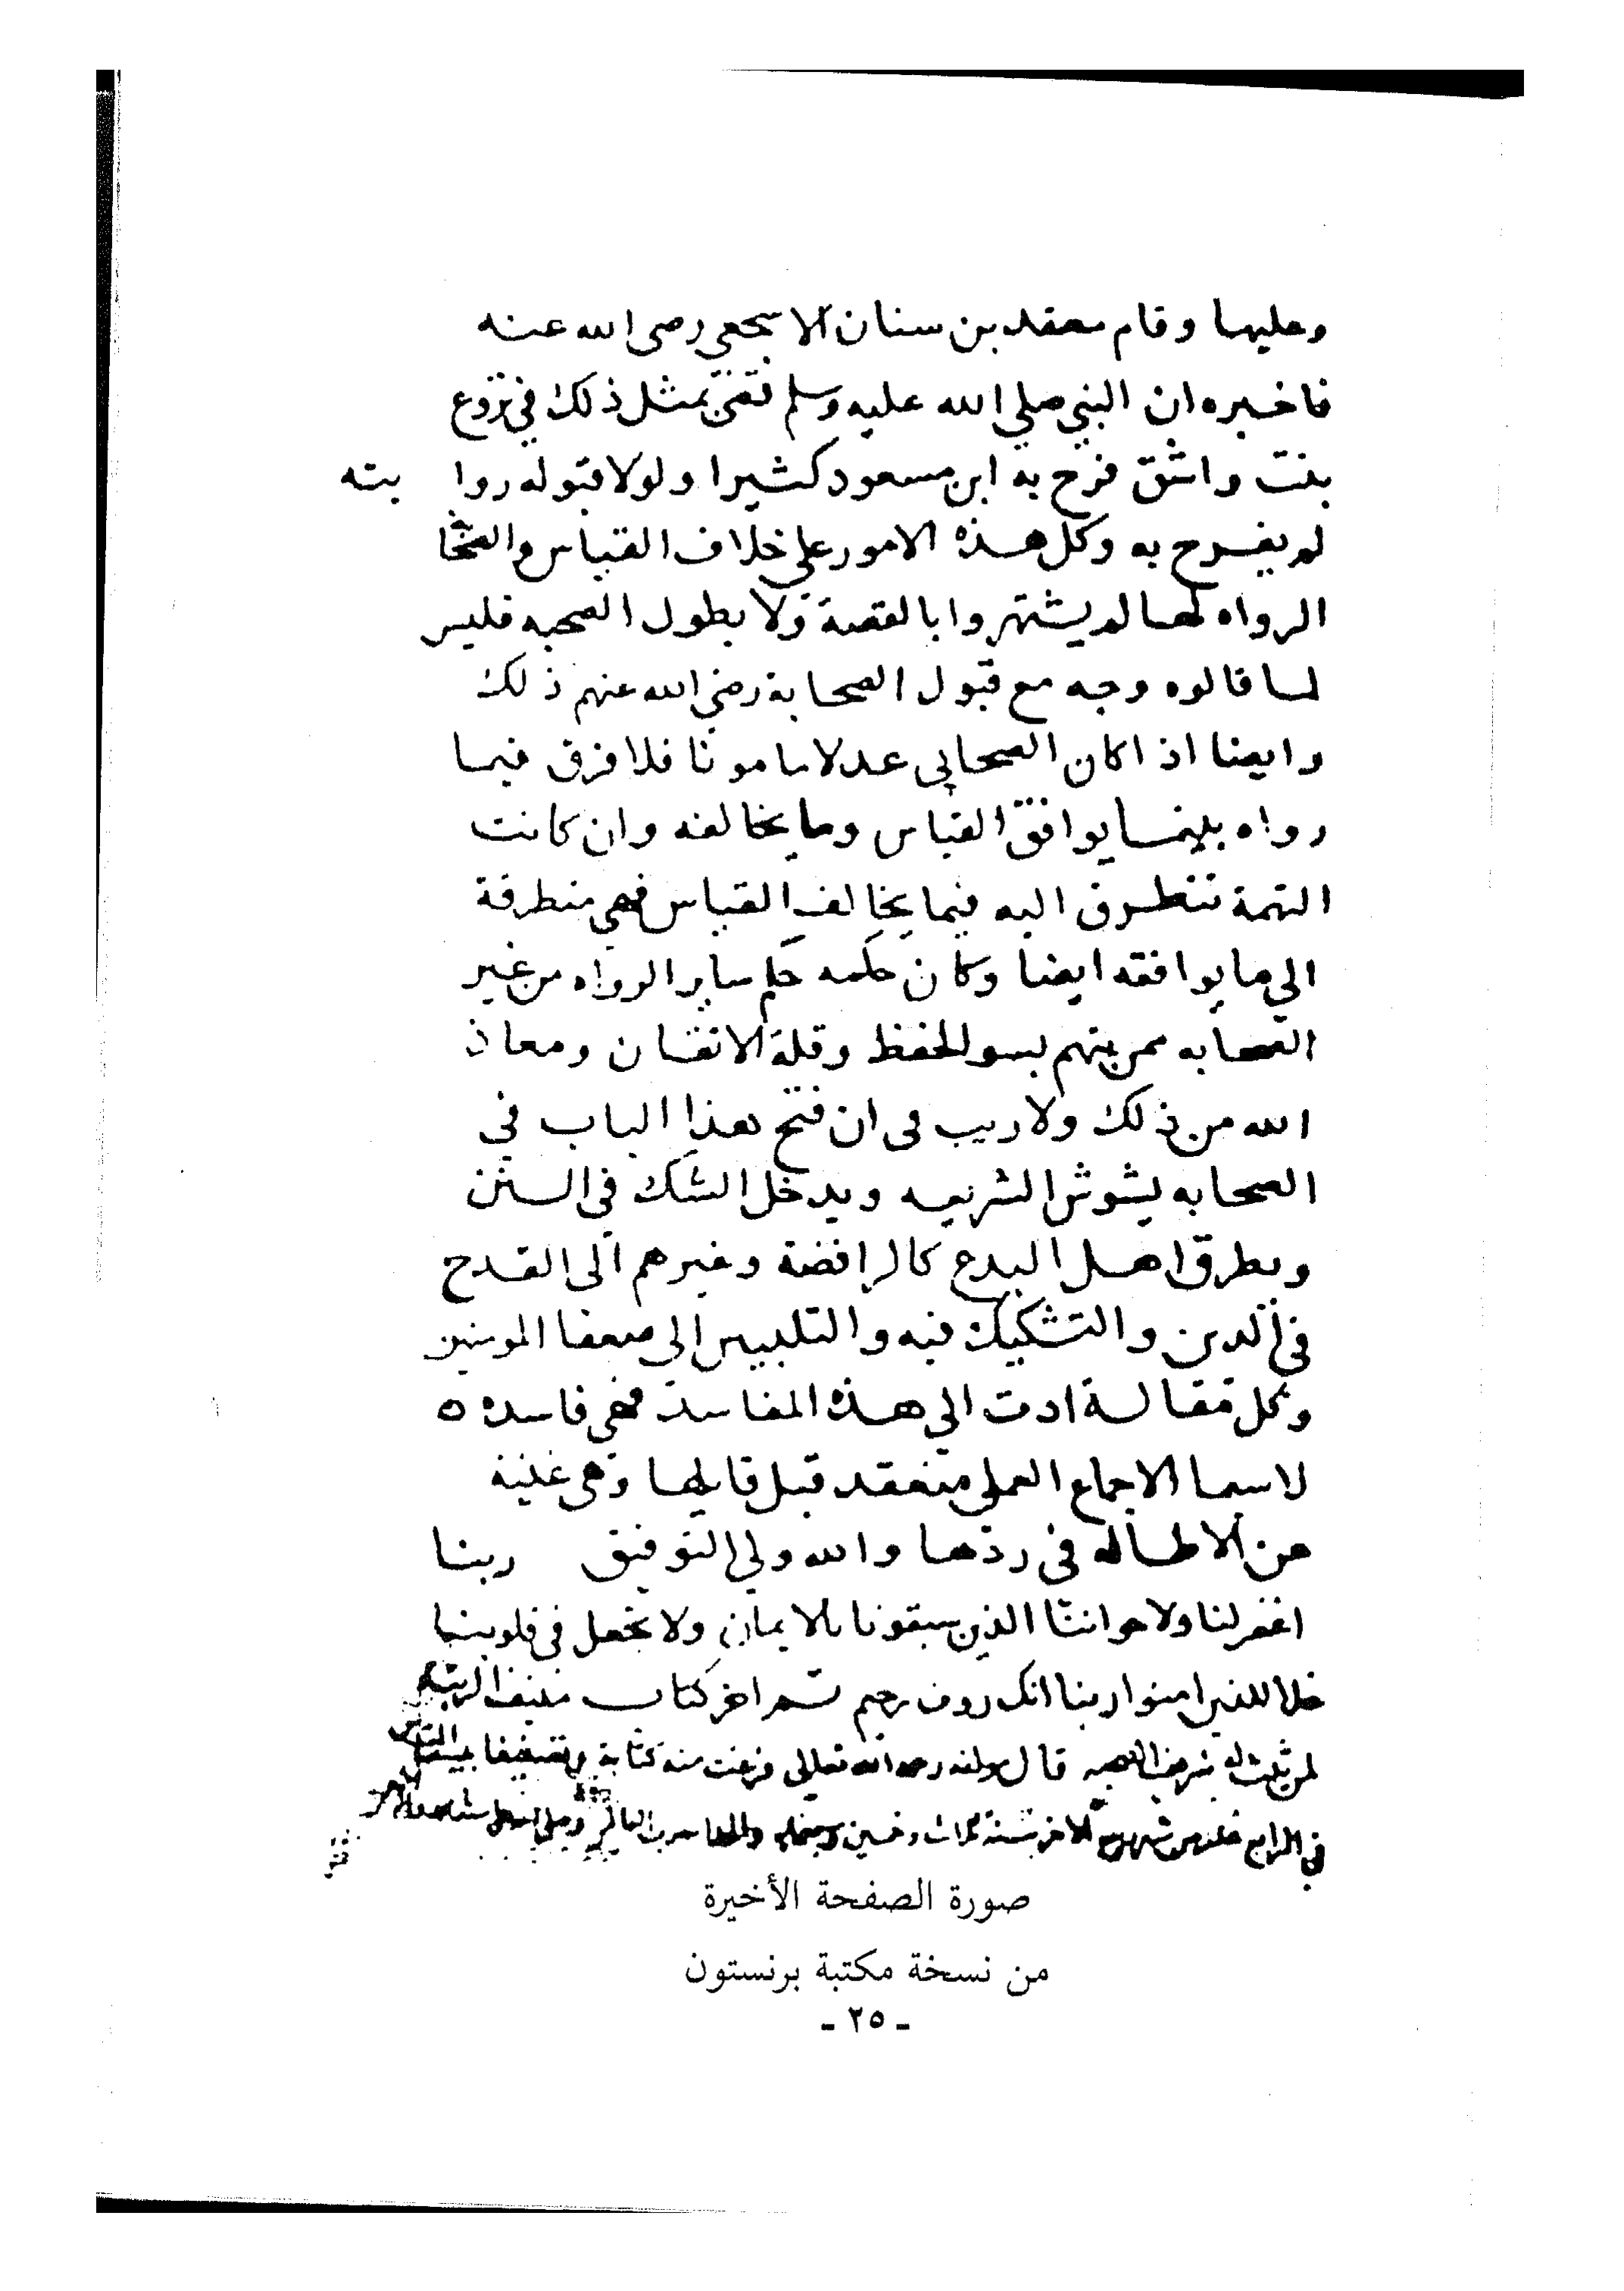 وعليها وقام معقل بن سنان الاشجعي رضى الله عنه
فاخبره ان النبي صلي الله عليه وسلم قضى بمثل ذلك في بروع
بنت واشق فرح به ابن مسعود كثيرا ولولا قبوله روا يته
لم يفرح به وكل هذه الامور على خلاف القياس والصحا
الرواه لها لم يشتهروا بالقصة ولا بطول الصحبه فليس
لما قالوه وجه مع قبول الصحابة رضي الله عنهم ذلك
وايضا اذا كان الصحابي عدلا مامونا فلا فرق فيما
رواه بينما يوافق القياس وما يخالفه وان كانت
التهمة تتطرق اليه فيما يخالف القياس فهي متطرقة
الي ما يوافقه ايضا وكان حكمه حكم ساير الرواه من غير
الصحابه ممن يتهم بسو الحفظ وقلة الاتقان ومعاذ
الله من ذلك ولا ريب فى ان فتح هذا الباب في
الصحابه يشوش الشريعه ويدخل الشك في السنن
ويطرق اهل البدع كالرافضة وغيرهم الى القدح
في الدين والتشكيك فيه والتلبيس الي ضعفا المومنين
وكل مقالة ادت الي هذه المفاسد فهي فاسده ه
لاسيما الاجماع العملي منعقد قبل قايلها وهى غنية
عن الاطاله في ردها والله ولي التوفيق ربنا
اغفر لنا ولاخواننا الذين سبقونا بالايمان ولا تجعل فى قلوبنا
غلا للذين امنوا ربنا انك روف رحيم تم اخر كتاب منيف الرتبه
لمن ثبت له شريف الصحبه قال مولفه رحمه الله تعالى فرغت منه كتابة وتصنيفا
في الرابع
صورة الصفحة الأخيرة
من نسخة مكتبة برنستون
- ٢٥ -